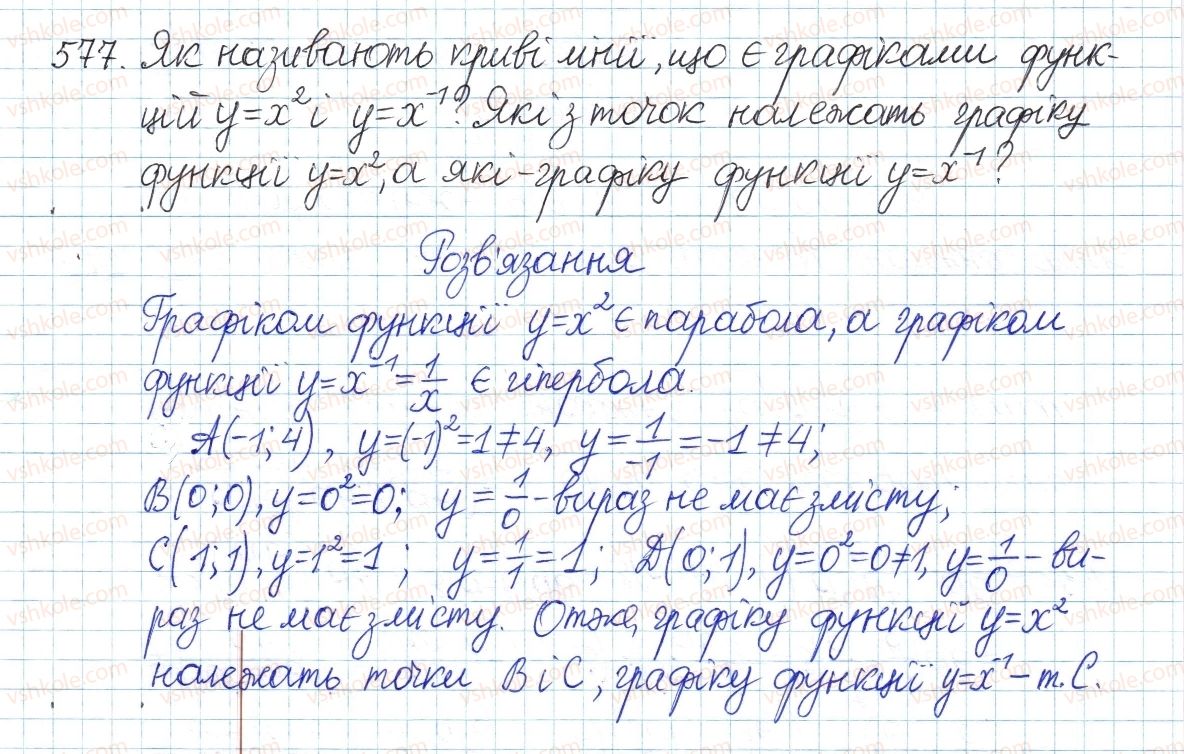 577. Як називають криві лінії, що є графіками функ-
цій y=x² і y=x⁻¹? Які з точок належать графіку
функції y=x², а які - графіку функції y=x⁻¹?
Розв'язання
Графіком функції y=x² є парабола, а графіком
функції y=x⁻¹=1/x є гіпербола.
A(-1;4), y=(-1)²=1≠4, y=1/-1=-1≠4;
B(0;0), y=0²=0; y=1/0 - вираз не має змісту;
C(1;1), y=1²=1; y=1/1=1; D(0;1), y=0²=0≠1, y=1/0 - ви-
раз не має змісту. Отже, графіку функцій y=x²
належать точки B і C, графіку функції y=x⁻¹ - т. C.